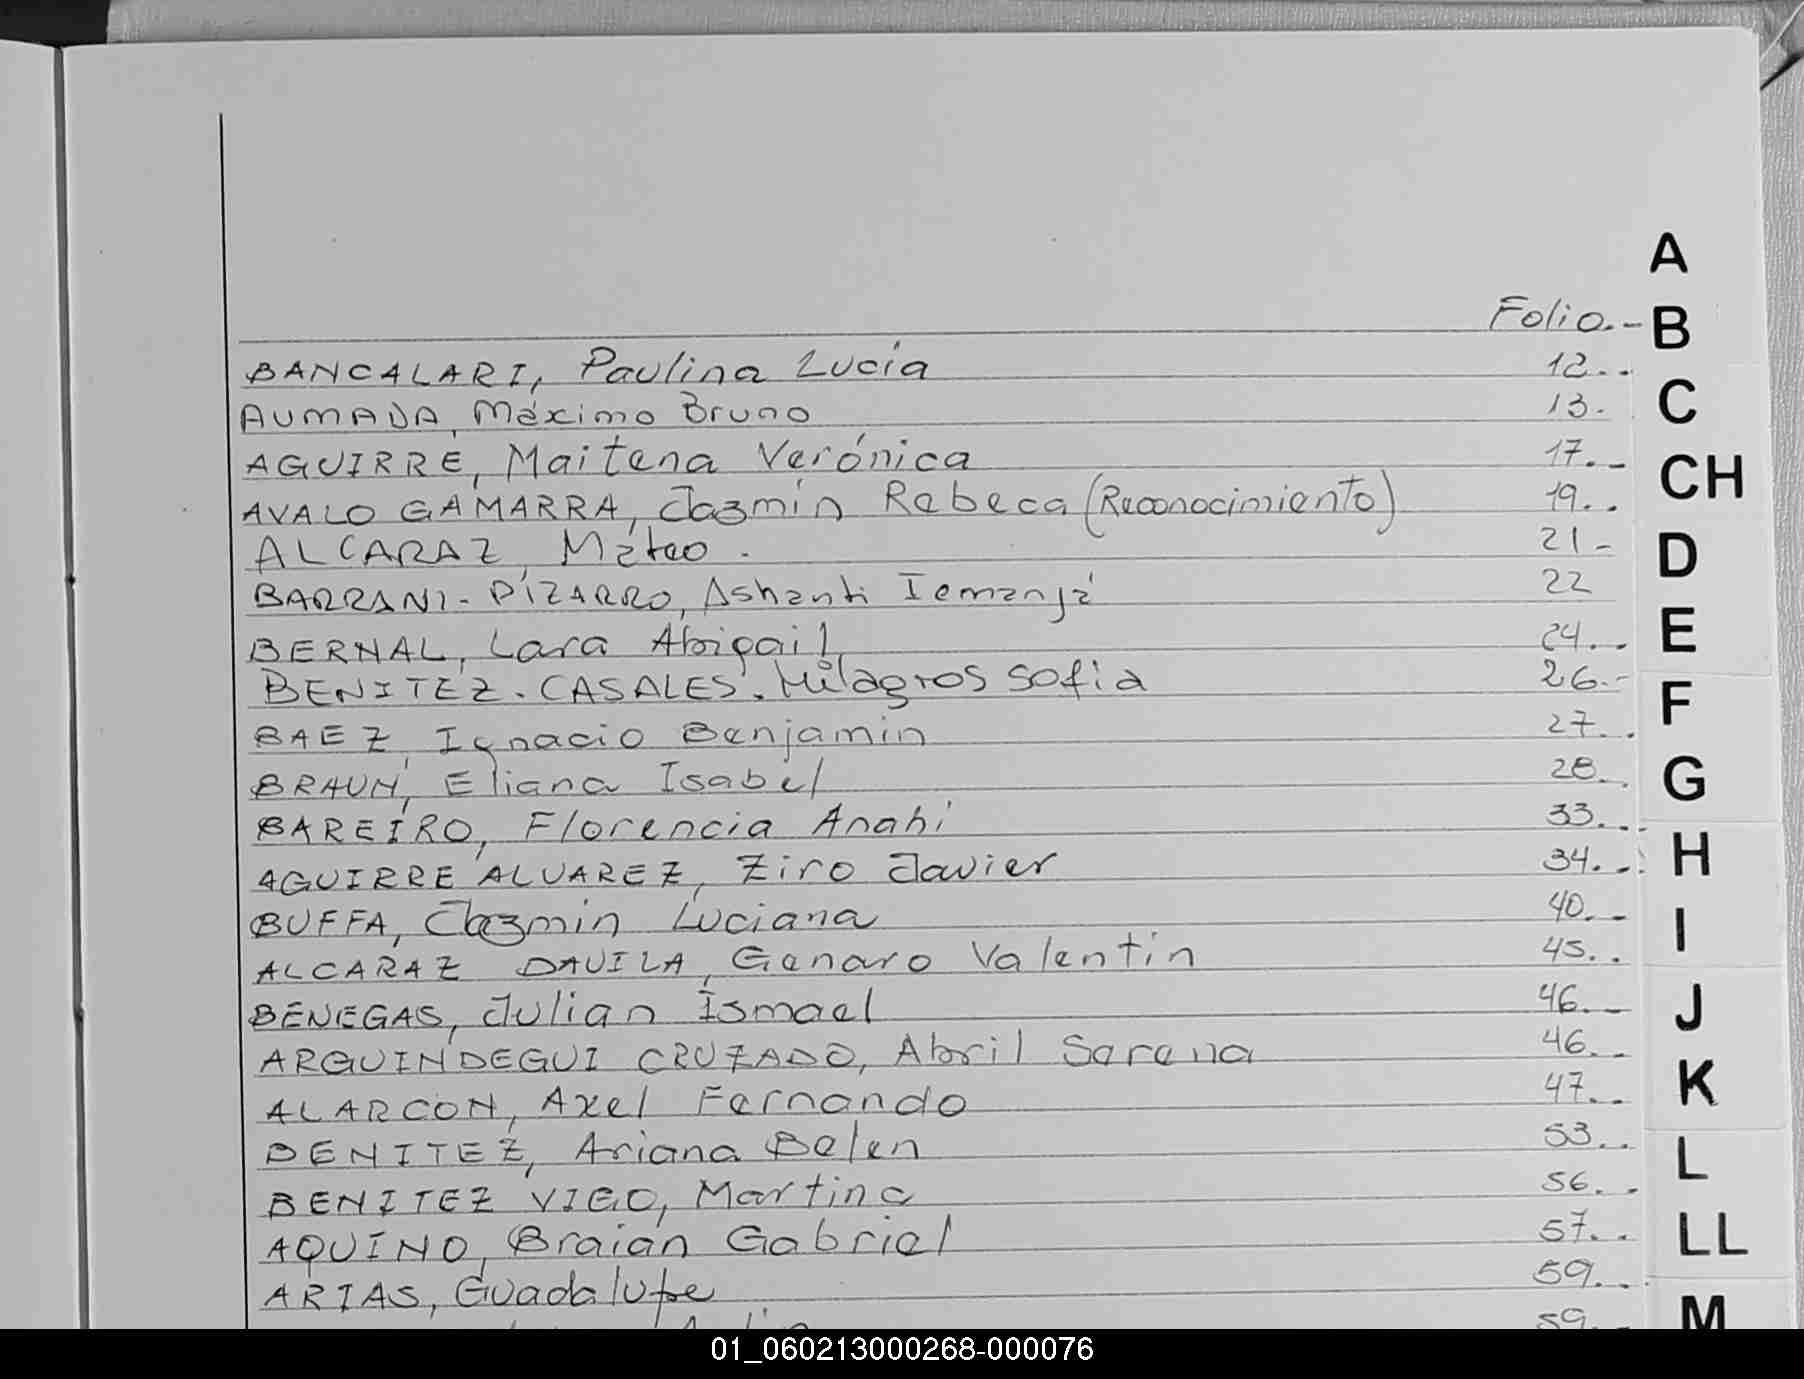 A
Folio.- B
BANCALARI, Paulina Lucía 12..
AUMADA, Máximo Bruno 13. C
AGUIRRE, Maitena Verónica 17.- CH
AVALO GAMARRA, Jazmín Rebeca (Reconocimiento) 19..
ALCARAZ, Mateo. 21- D
BARRANI-PIZARRO, Ashanti Iemanjá 22
BERNAL, Lara Abigail 24.. E
BENITEZ. CASALES. Milagros Sofia 26.-
BAEZ, Ignacio Benjamin 27.. F
BRAUN, Eliana Isabel 28. G
BAREIRO, Florencia Anahí 33...
AGUIRRE ALVAREZ, Ziro Javier 34... H
BUFFA, Jazmin Luciana 40.- I
ALCARAZ DAVILA, Genaro Valentín 45..
BENEGAS, Julian Ismael 46.- J
ARQUINDEGUI CRUZADO, Abril Serena 46..
ALARCON, Axel Fernando 47.. K
BENITEZ, Ariana Belen 53.. L
BENITEZ VIEO, Martina 56..
AQUINO, Braian Gabriel 57.. LL
ARIAS, Guadalupe 59...
59.. M
01_060213000268-000076